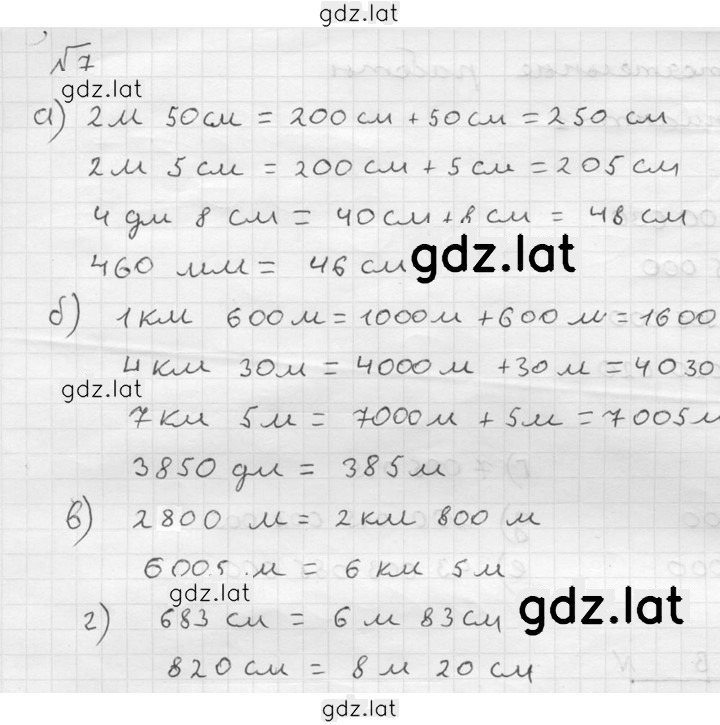 gdz.lat
№7
gdz.lat
а) 2м 50см = 200см + 50см = 250см
2м 5см = 200см + 5см = 205см
4дм 8см = 40см + 8см = 48см
460 мм = 46см gdz.lat
б) 1км 600м = 1000м + 600м = 1600
4км 30м = 4000м + 30м = 4030
gdz.lat
7км 5м = 7000м + 5м = 7005м
3850 дм = 385м
в) 2800 м = 2км 800м
6005 м = 6км 5м
gdz.lat gdz.lat
г) 683 см = 6м 83см
820см = 8м 20см
gdz.lat